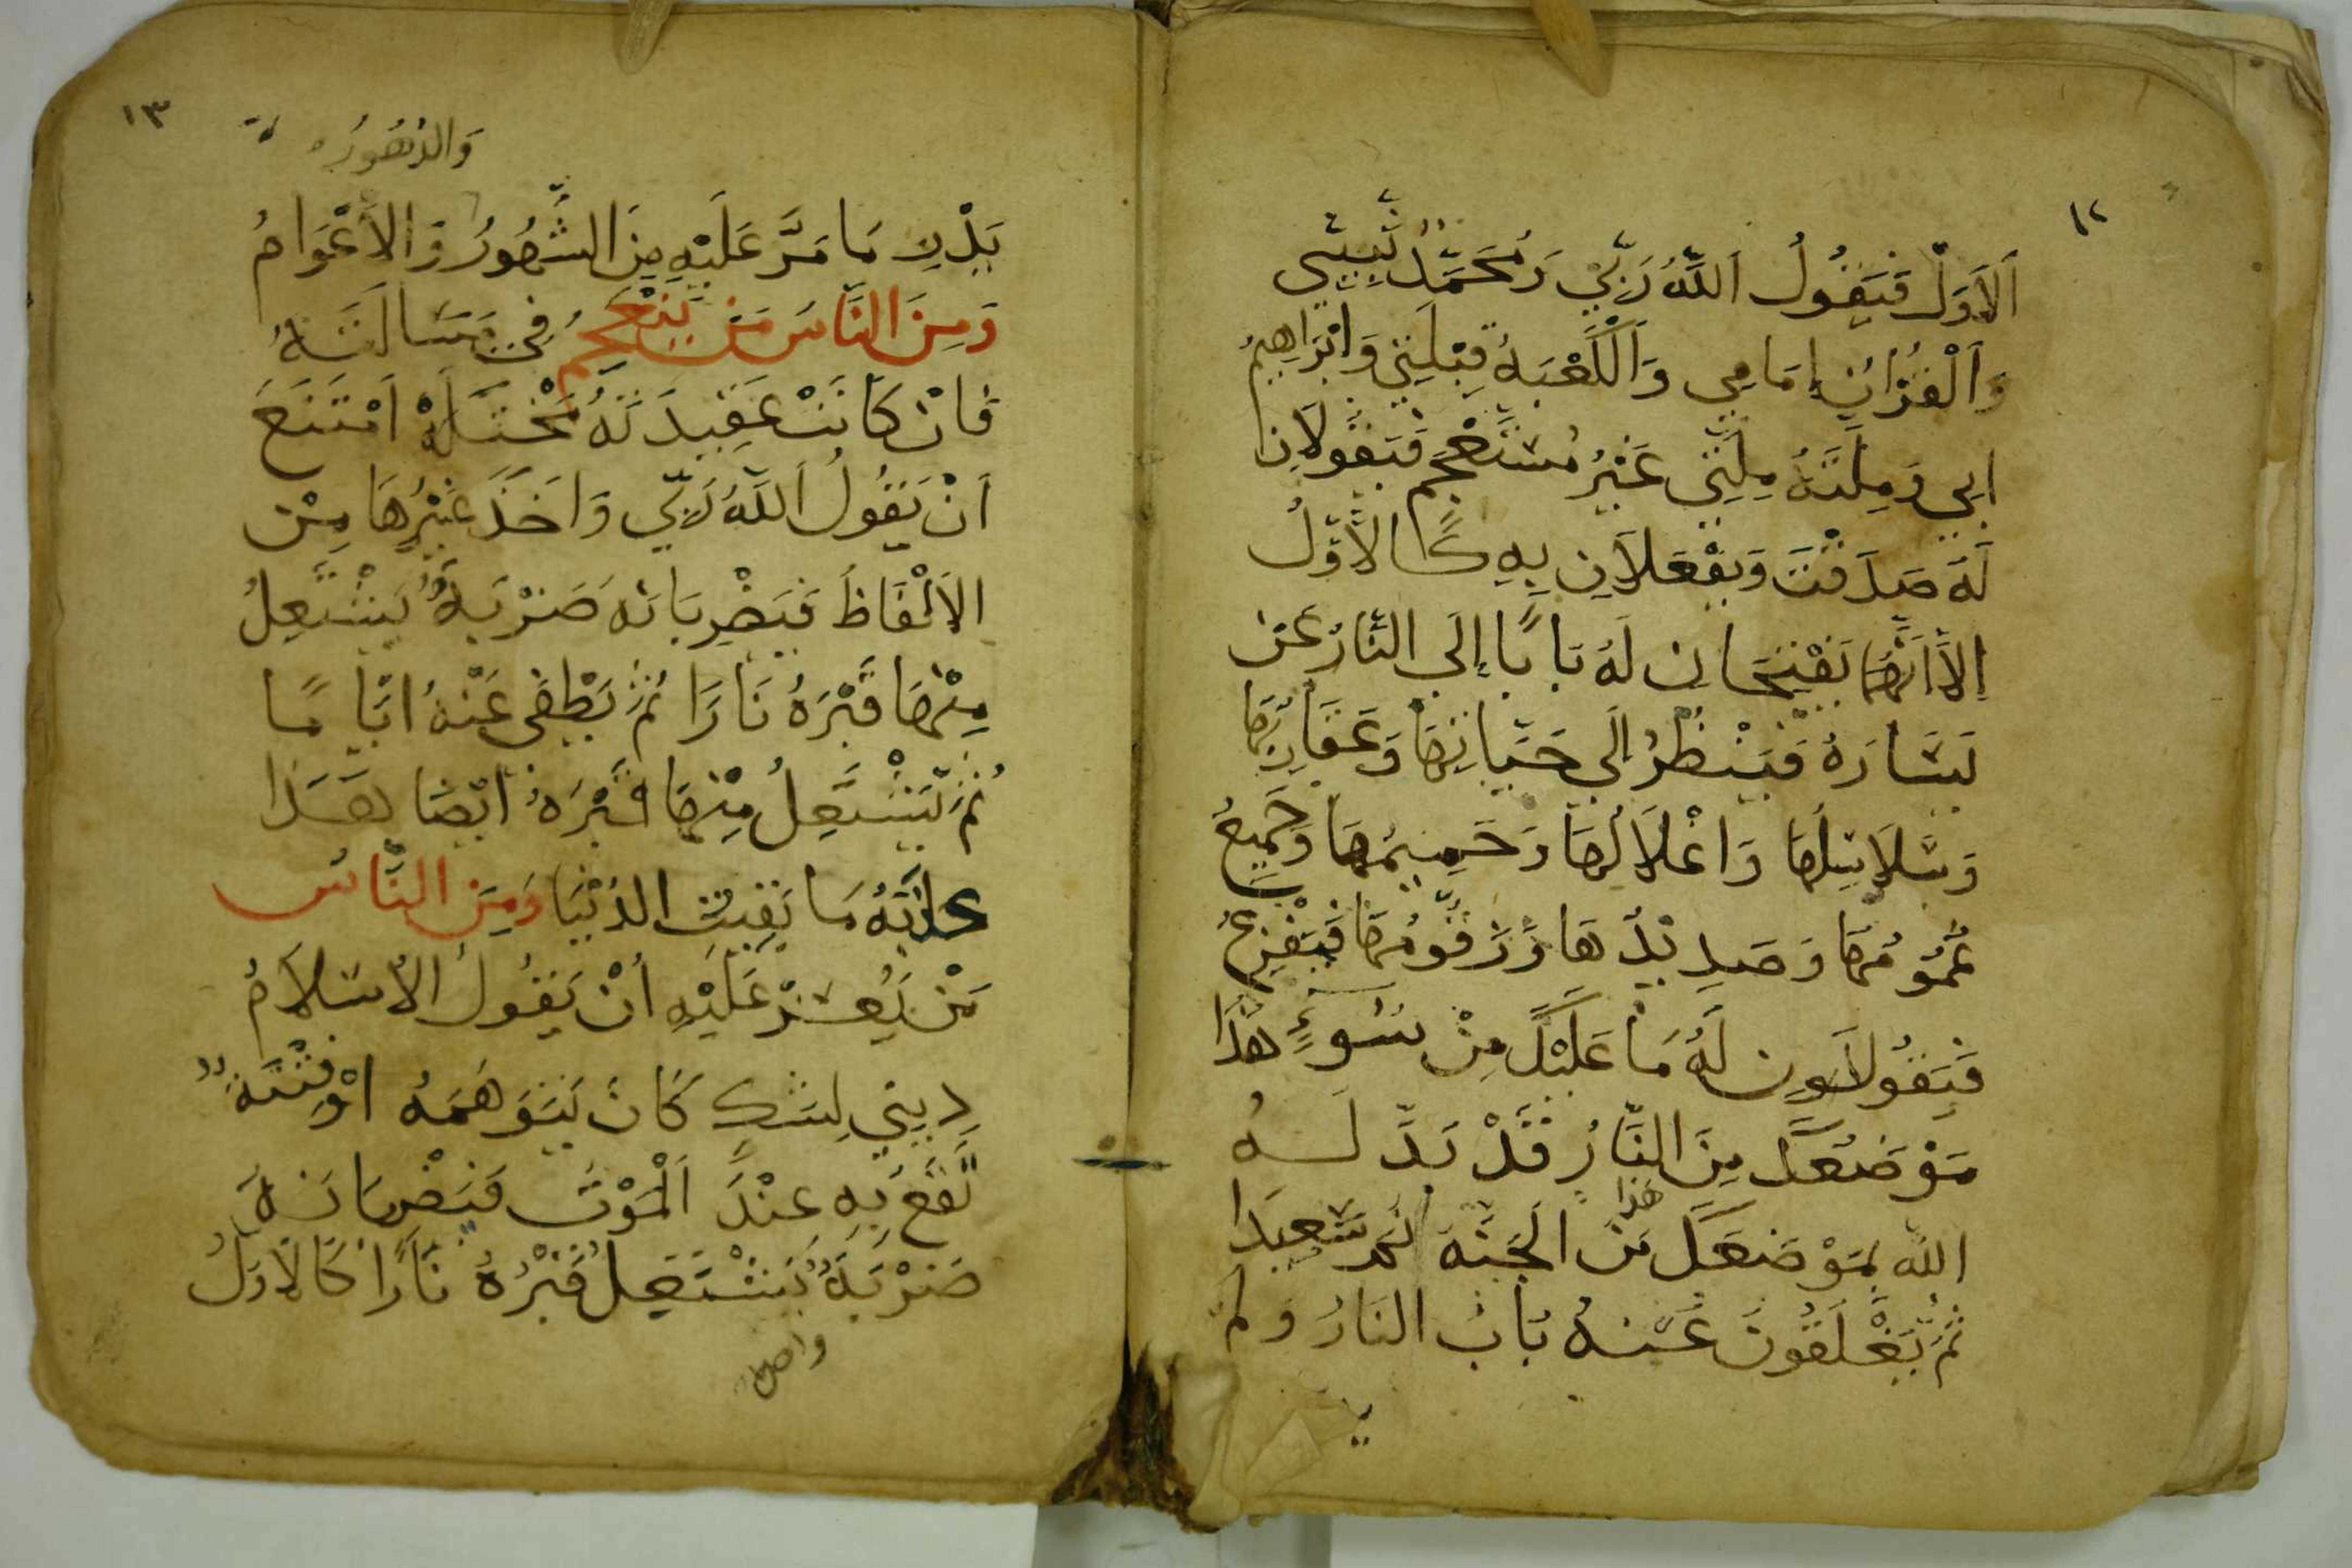 ١٢
الاول فيقول الله ربي ومحمد نبيي
والقران امامي والكعبة قبلتي وابراهيم
ابي وملته ملتي غير مستعجم فيقولان
له صدقت ويفعلان به كالاول
الا انهما يفتحان له بابا إلى النار عن
يساره فينظر إلى حياتها وعقاربها
وسلاسلها واغلالها وحميمها وجميع
غمومها وصديدها وزقومها فيفزع
فيقولون له ما عليك من سوء هذا
موضعك من النار قد بدله
الله بموضعك هذا من الجنة نم سعيدا
ثم يغلقون عنه باب النار ولم
١٣
والدهور
يدر ما مر عليه من الشهور والاعوام
ومن الناس من ينعجم في مسالته
فان كانت عقيدته مختله امتنع
أن يقول الله ربي واخذ غيرها من
الالفاظ فيضربانه ضربة يشتعل
منها قبره نارا ثم يطفى عنه اياما
ثم يشتعل منها قبره ايضا هذا
دابه ما بقيت الدنيا ومن الناس
من يعسر عليه أن يقول الاسلام
ديني لشك كان يتوهمه او فتنة
تقع به عند الموت فيضربانه
ضربة يشتعل قبره نارا كالاول